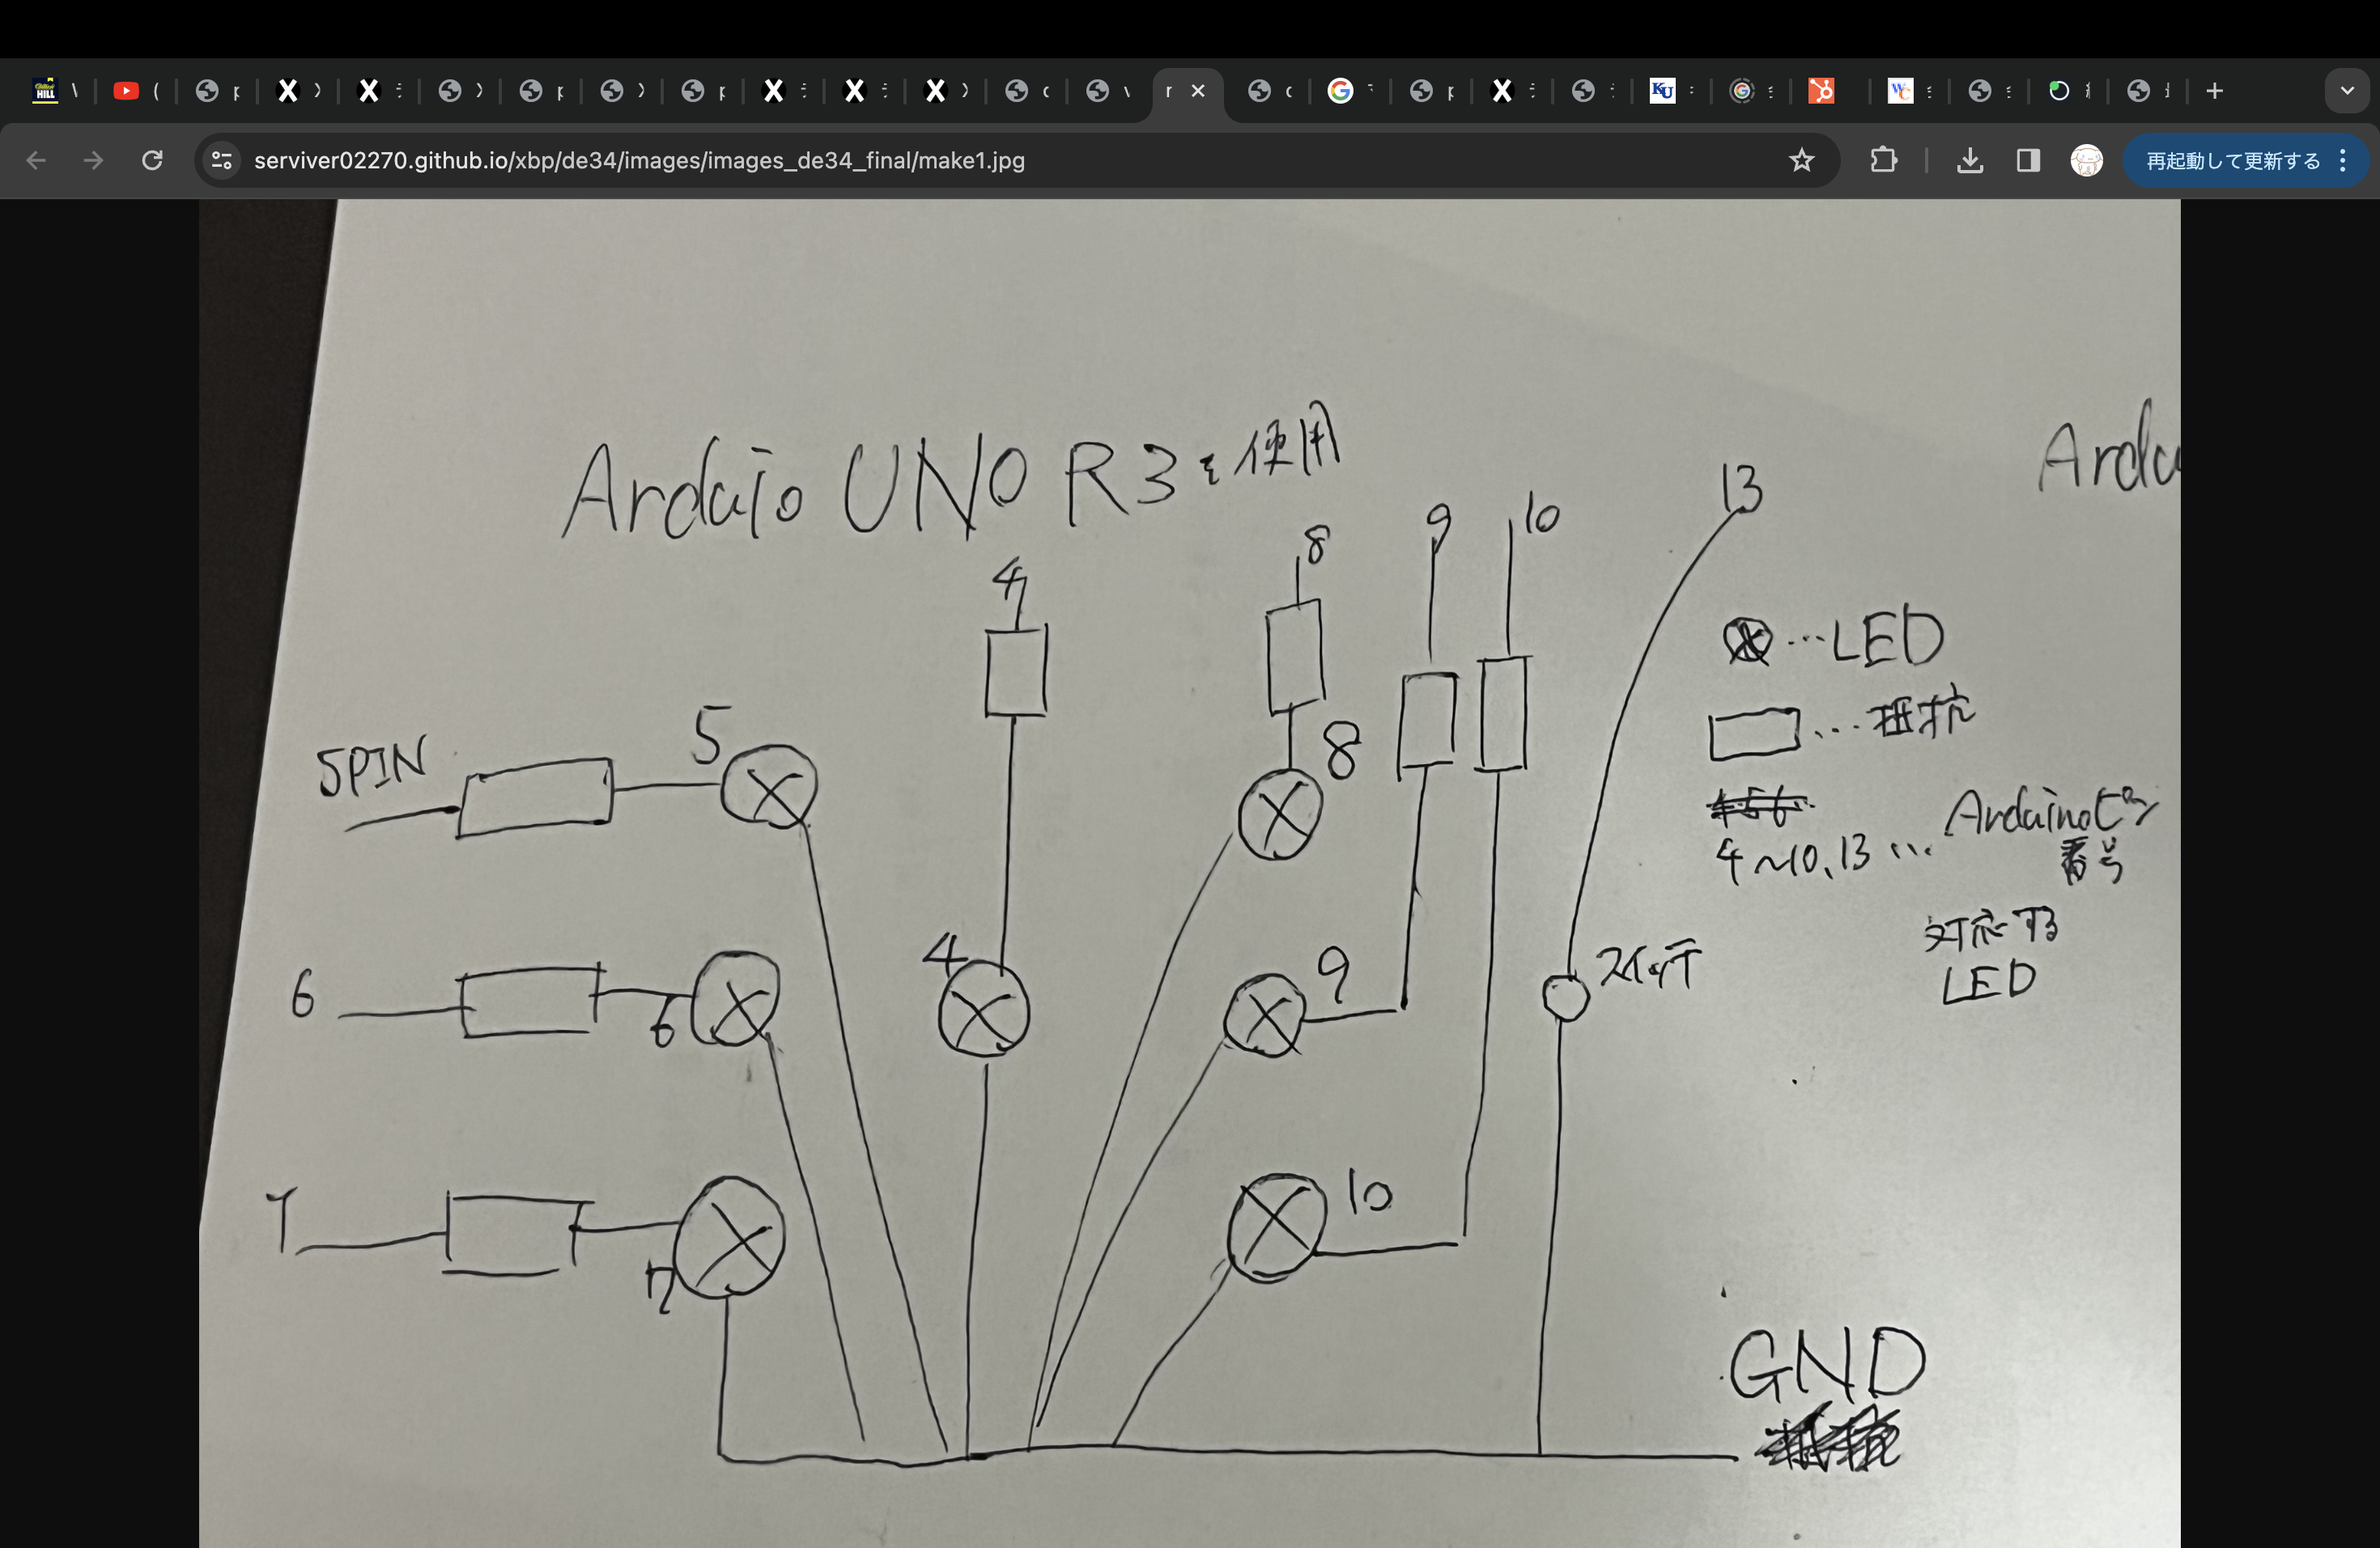 serviver02270.github.io/xbp/de34/images/images_de34_final/make1.jpg
再起動して更新する
Arduio UNO R3を使用
Ardu
4
8
9
10
13
5PIN
5
8
…LED
…抵抗
4~10、13 … Arduinoピン
番号
対応する
LED
6
6
4
9
スイッチ
7
7
10
GND